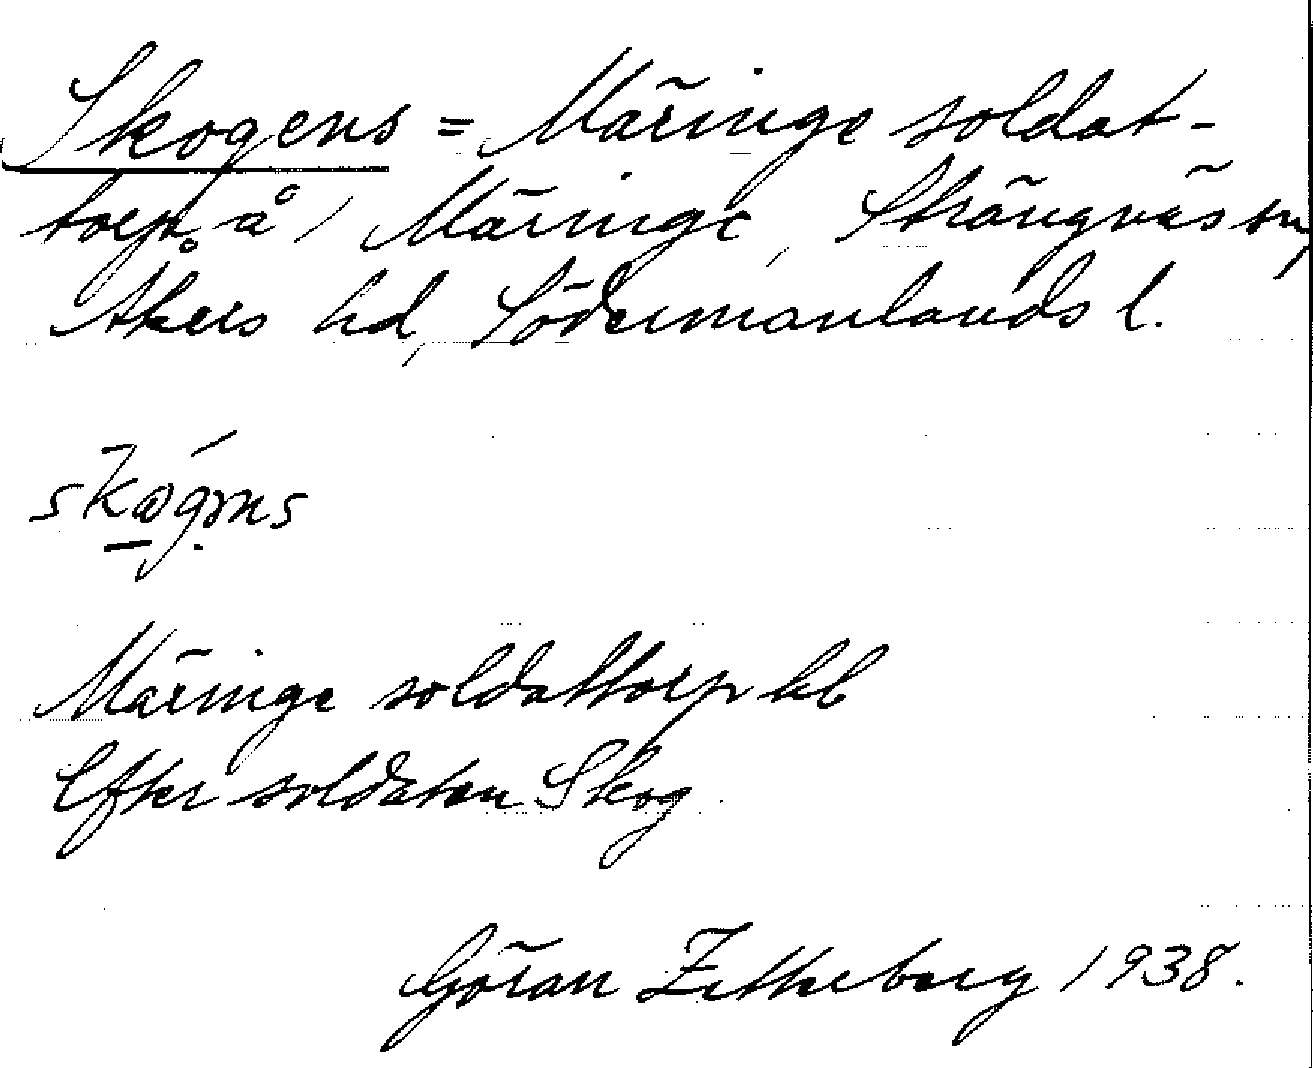 Skogens = Märinge soldat-
torp å / Märinge, Strängnäs sn,
Åkers hd, Södermanlands l.
Märinge soldattorp kb
Efter soldaten Skog.
Göran Zetheborg 1938.